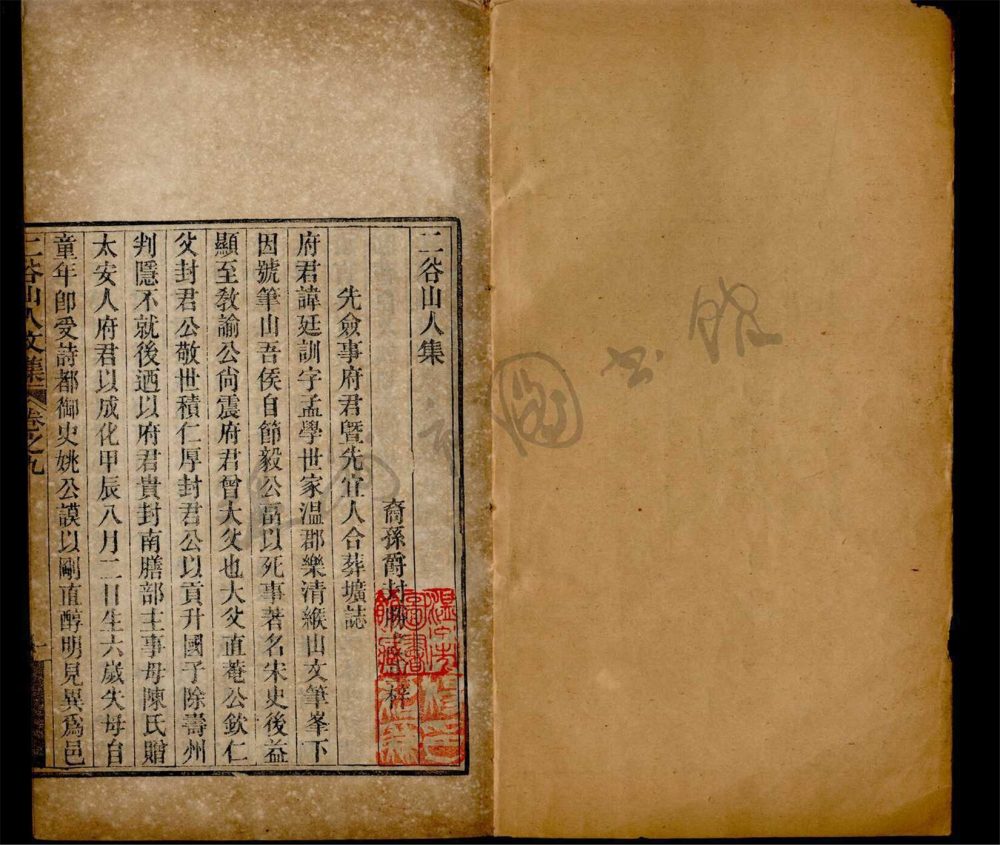 二谷山人集
裔孫爵封
先僉事府君曁先宜人合葬壙誌
府君諱廷訓字孟學世家温郡樂清緱山文筆峯下
因號筆山吾侯自節毅公畐以死事著名宋史後益
顯至敎諭公尙震府君曾大父也大父直菴公欽仁
父封君公敬世積仁厚封君公以貢升國子除壽州
判隱不就後迺以府君貴封南膳部主事母陳氏贈
太安人府君以成化甲辰八月二日生六歲失母自
童年卽受詩都御史姚公謨以剛直醇明見異爲邑
二谷山人文集 卷之九 一